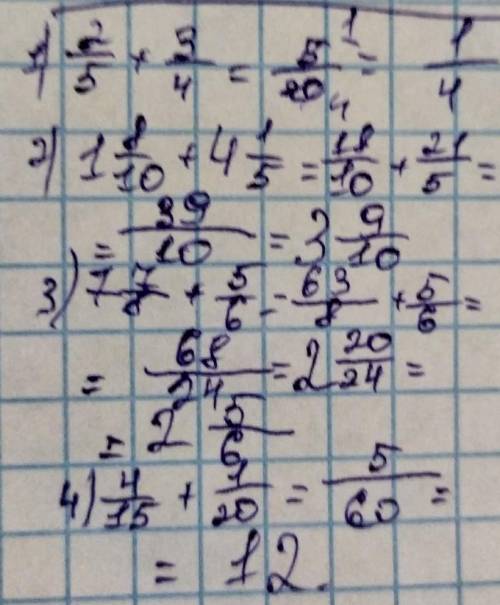 1) 2/5 + 3/4 = 5/20 = 1/4
2) 1 8/10 + 4 1/5 = 18/10 + 21/5 =
= 39/10 = 3 9/10
3) 7 7/8 + 5/6 = 63/8 + 5/6 =
= 68/24 = 2 20/24 =
= 2 5/6
4) 4/15 + 1/20 = 5/60 =
= 12.